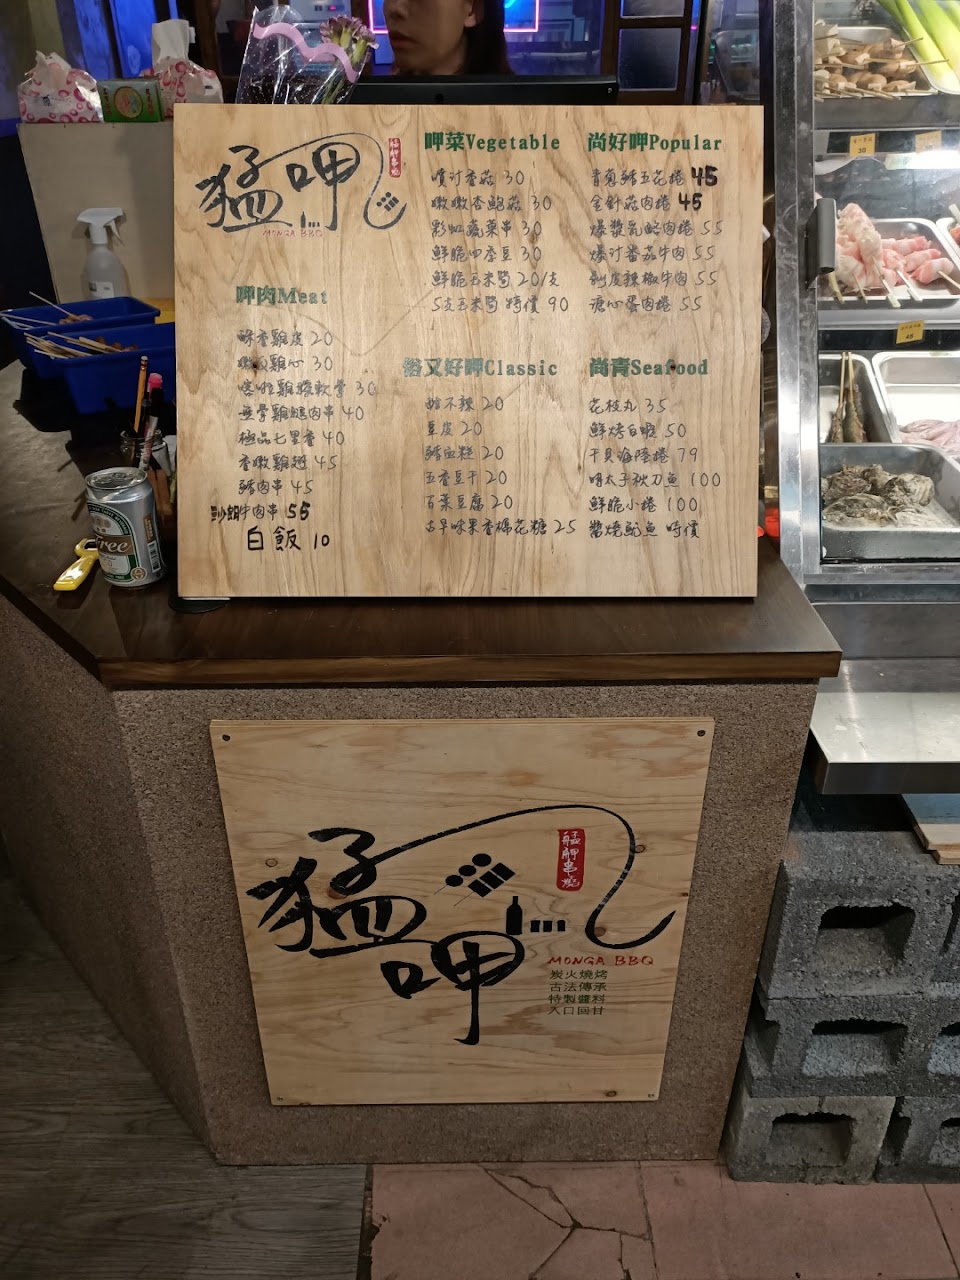 猛呷
艋舺串燒
MONGA BBQ
呷肉Meat
酥香雞皮 20
嫩Q雞心 30
無骨雞腿肉串 40
極品七里香 40
香嫩雞翅 45
豬肉串 45
牛肉串 55
白飯 10
呷菜Vegetable
噴汁香菇 30
嫩嫩杏鮑菇 30
彩虹蔬菜串 30
鮮脆四季豆 30
鮮脆玉米筍 20/支
5支玉米筍 特價 90
俗又好呷Classic
甜不辣 20
豆皮 20
豬血糕 20
五香豆干 20
百葉豆腐 20
古早味果香棉花糖 25
尚好呷Popular
青蔥豬五花捲 45
金針菇肉捲 45
爆漿乳酪肉捲 55
爆汁番茄牛肉 55
剝皮辣椒牛肉 55
溏心蛋肉捲 55
尚青Seafood
花枝丸 35
鮮烤白蝦 50
干貝海陸捲 79
明太子秋刀魚 100
鮮脆小捲 100
醬燒魷魚 時價
猛呷
艋舺串燒
MONGA BBQ
炭火燒烤
古法傳承
特製醬料
入口回甘
Free